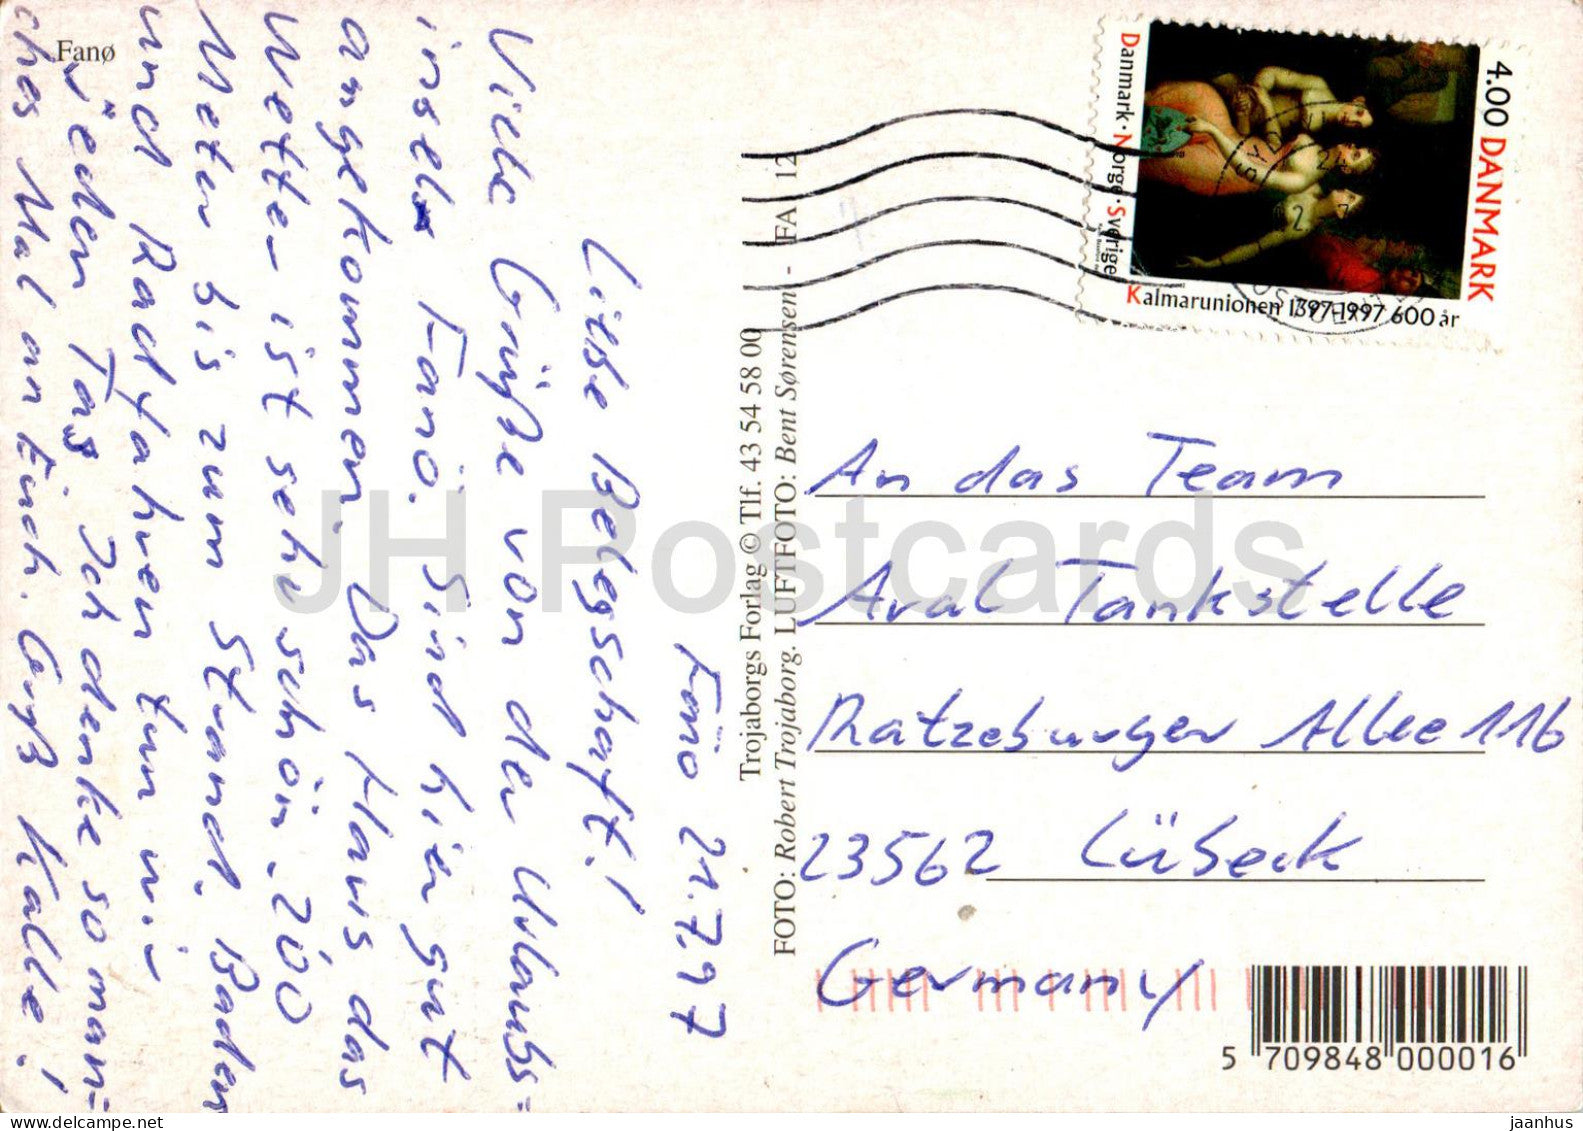 Fanø
Fanö 21.7.97
Liebe Belegschaft!
Viele Grüße von der Urlaubs=
insel Fanö. Sind hier gut
angekommen. Das Haus das
Wetter ist sehr schön. 200
Meter bis zum Strand. Baden
und Radfahren tun wir
jeden Tag. Ich denke so man=
ches Mal an Euch. Gruß Kalle!
Trojaborgs Forlag © Tlf. 43 54 58 00
FOTO: Robert Trojaborg. LUFTFOTO: Bent Sørensen - FA 12
4.00 DANMARK
Danmark · Norge · Sverige
Kalmarunionen 1397-1997 600 år
An das Team
Aral Tankstelle
Ratzeburger Allee 116
23562 Lübeck
Germany
5 709848 000016
JH Postcards
www.delcampe.net
jaanhus